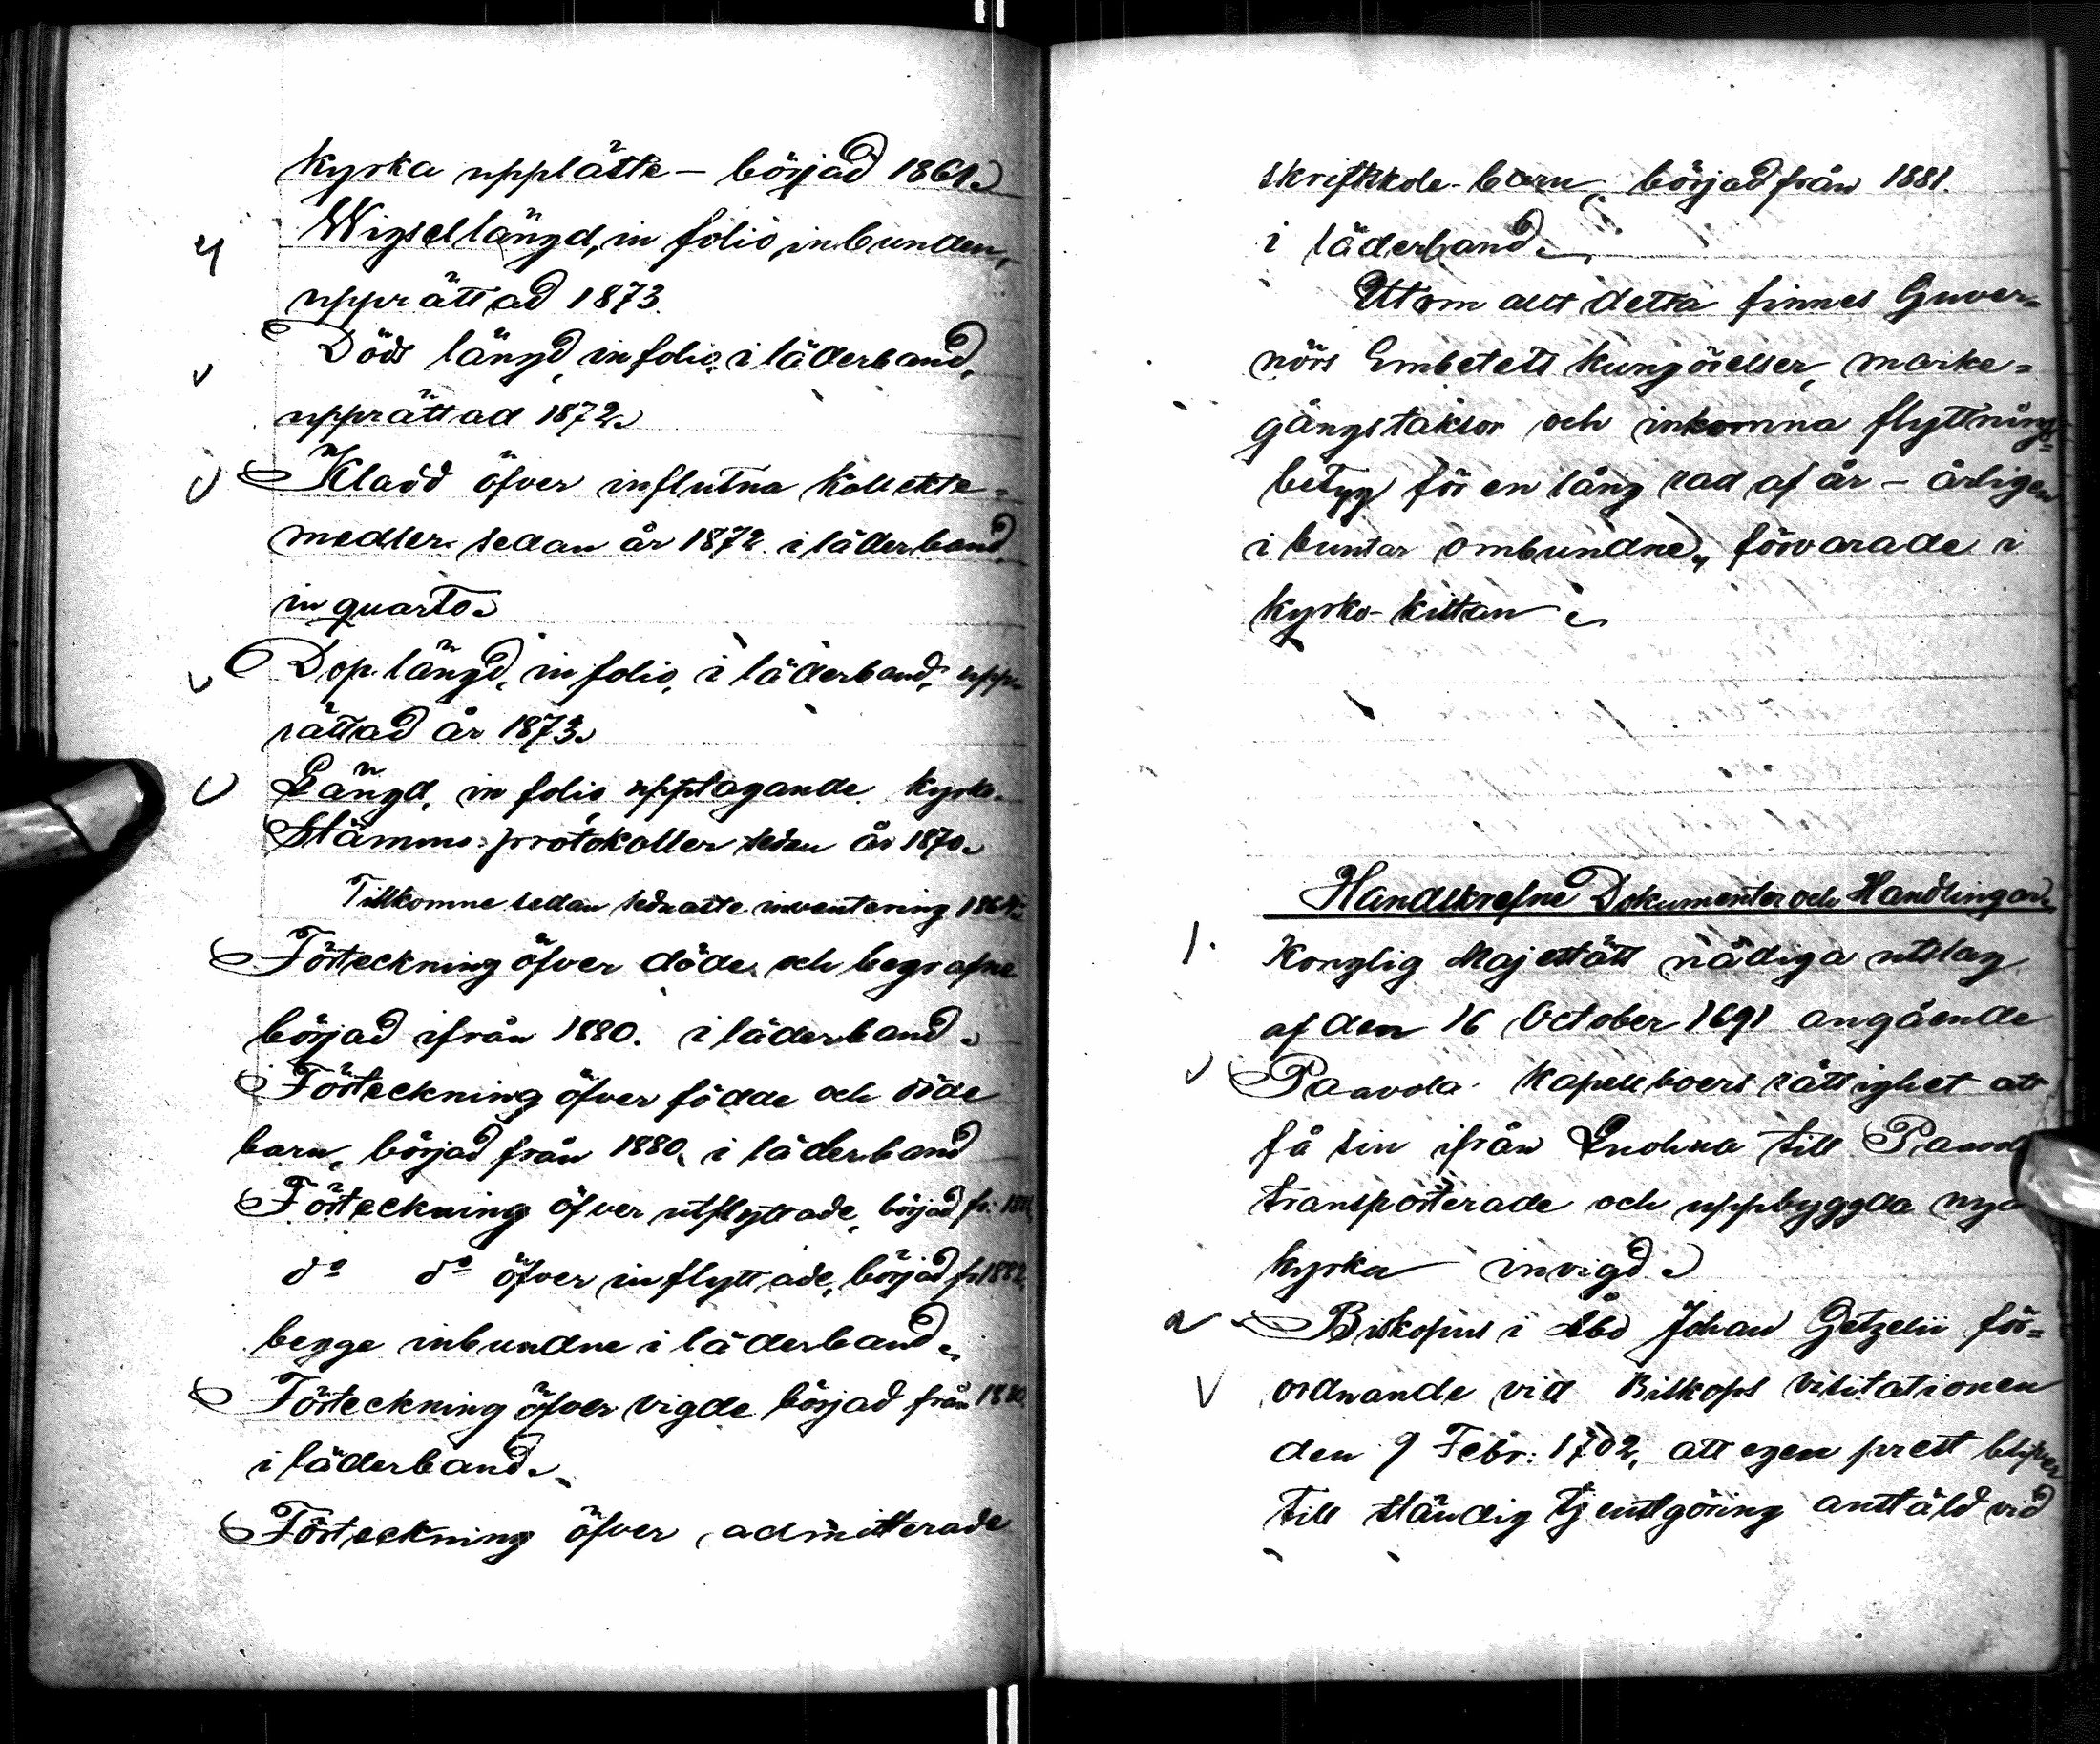 kyrka upplåtte – börjad 1861.
Wigsellängd, in folio, inbunden,
upprättad 1873.
Döds längd, in folio, i läderband,
upprättad 1872.
Kladd öfver influtna kollekte-
medler sedan år 1872. i läderband
in quarto.
Dop längd, in folio, i läderband, upp-
rättad år 1873.
Längd, in folio, upptagande kyrko-
Stämmo-protokoller sedan år 1870.
Tillkomne sedan sednaste inventering
Förteckning öfver döde och begrafne
börjad ifrån 1880. i läderband.
Förteckning öfver födde och döde
barn, börjad från 1880, i läderband
Förteckning öfver utflyttade, börjad fr.
do do öfver inflyttade, börjad fr 1882.
begge inbundne i läderband.
Förteckning öfver vigde börjad från 1880
i läderband.
Förteckning öfver admitterade
skriftskole-barn, börjad från 1881.
i läderband.
Utom allt detta finnes Guver-
nörs Embetets kungörelser, marke-
gångstaxor och inkomna flyttnings-
betyg för en lång rad af år – årligen
i buntar ombundne, förvarade i
kyrko-kistan.
Handskrefne Dokumenter och Handlingar.
1. Konglig Majestätt nådiga utslag
af den 16 October 1691 angående
Paavola Kapellboers rättighet att
få sin ifrån till Paavola
transporterade och uppbyggda nya
kyrka invigd.
2 Biskopens i Åbo Johan Getzelii för-
ordnande vid Biskops Visitationen
den 9 Febr: 1702, att egen prest blifver
till ständig tjenstgöring anstäld vid